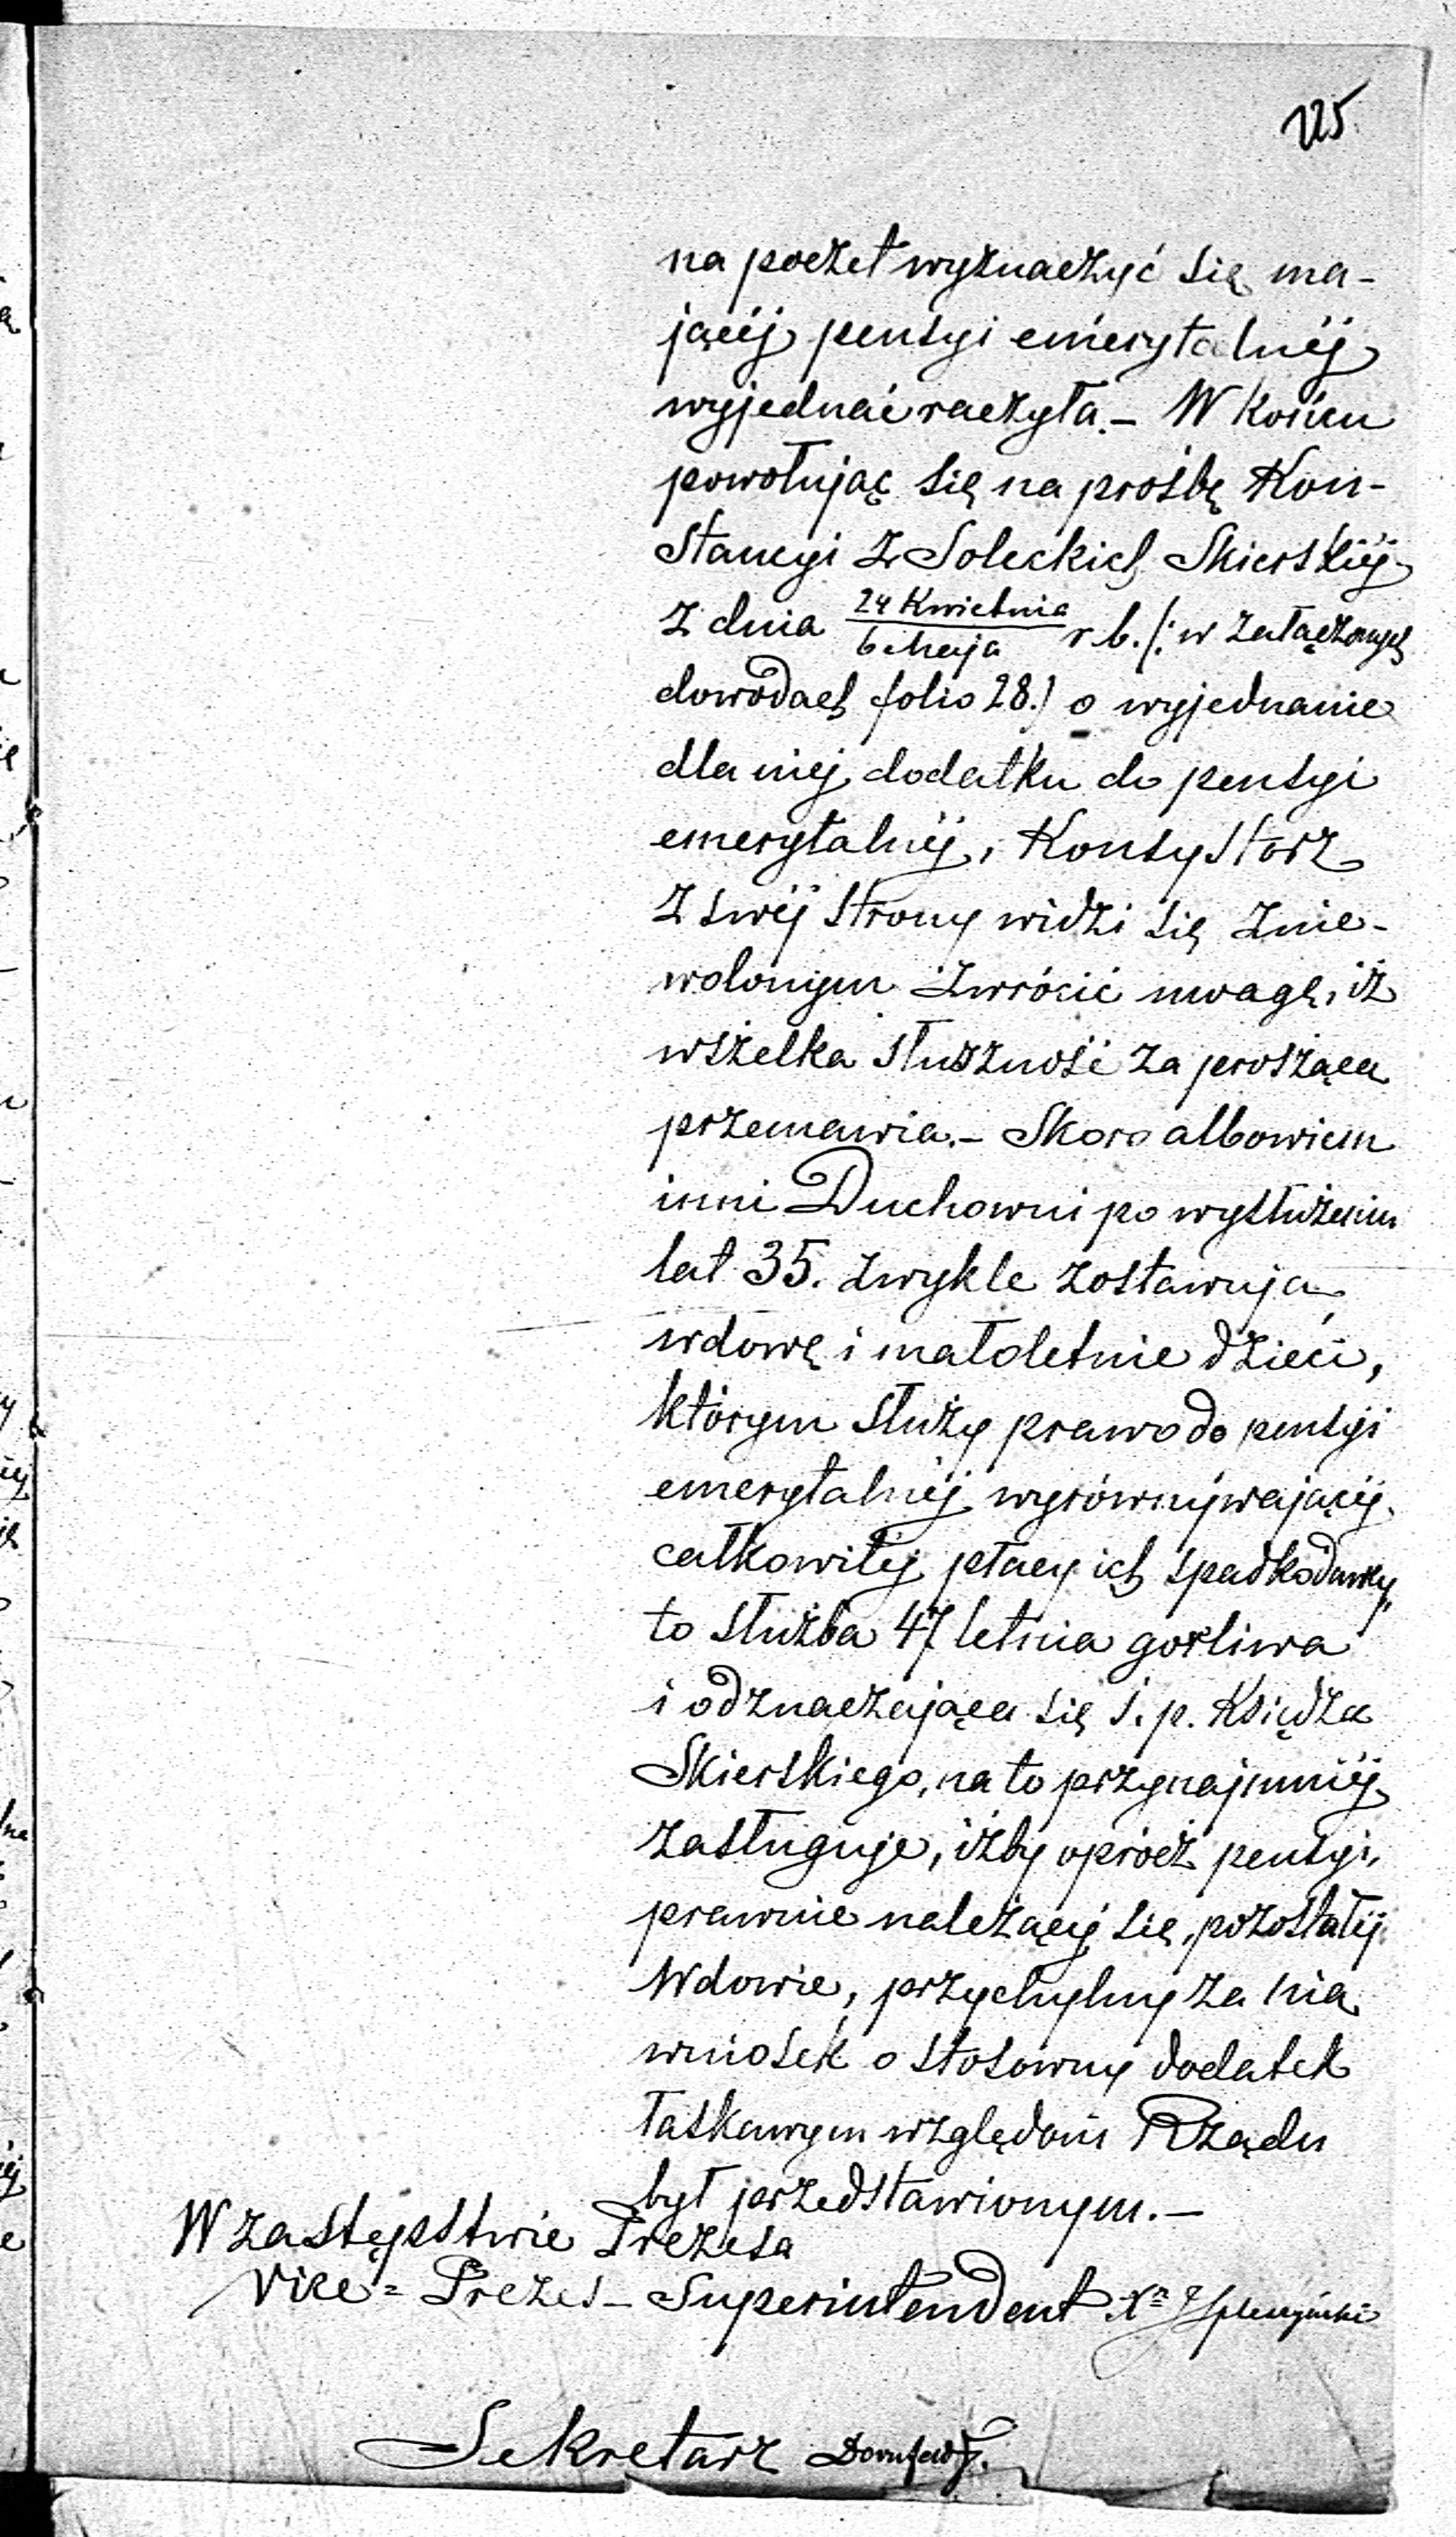 225
na poczet wyznaczyć się ma-
jącéj pensyi emerytalnéj
wyjednać raczyła. – W końcu
powołując się na prośbę Kon-
stancyi z Soleckich Skierskiéj
z dnia 24 Kwietnia / 6 Maja r b. /: w załączonych
dowodach folio 28.) o wyjednanie
dla niej dodatku do pensyi
emerytalnéj, Konsystorz
z swéj strony widzi się znie-
wolonym zwrócić uwagę, iż
wszelka słuszność za proszącą
przemawia. – Skoro albowiem
inni Duchowni po wysłużeniu
lat 35. zwykle zostawują
wdowę i małoletnie dzieci,
którym służy prawo do pensyi
emerytalnéj wyrównywającéj
całkowitéj płacy ich spadkodawcy,
to służba 47 letnia gorliwa
i odznaczająca się ś. p. Księdza
Skierskiego, na to przynajmniéj
zasługuje, iżby oprócz pensyi,
prawnie należącéj się, pozostałéj
Wdowie, przychylny za nią
wniosek o stosowny dodatek
łaskawym względom Rządu
był przedstawionym. –
W zastępstwie Prezesa
Vice = Prezes – Superintendent Xz
Sekretarz